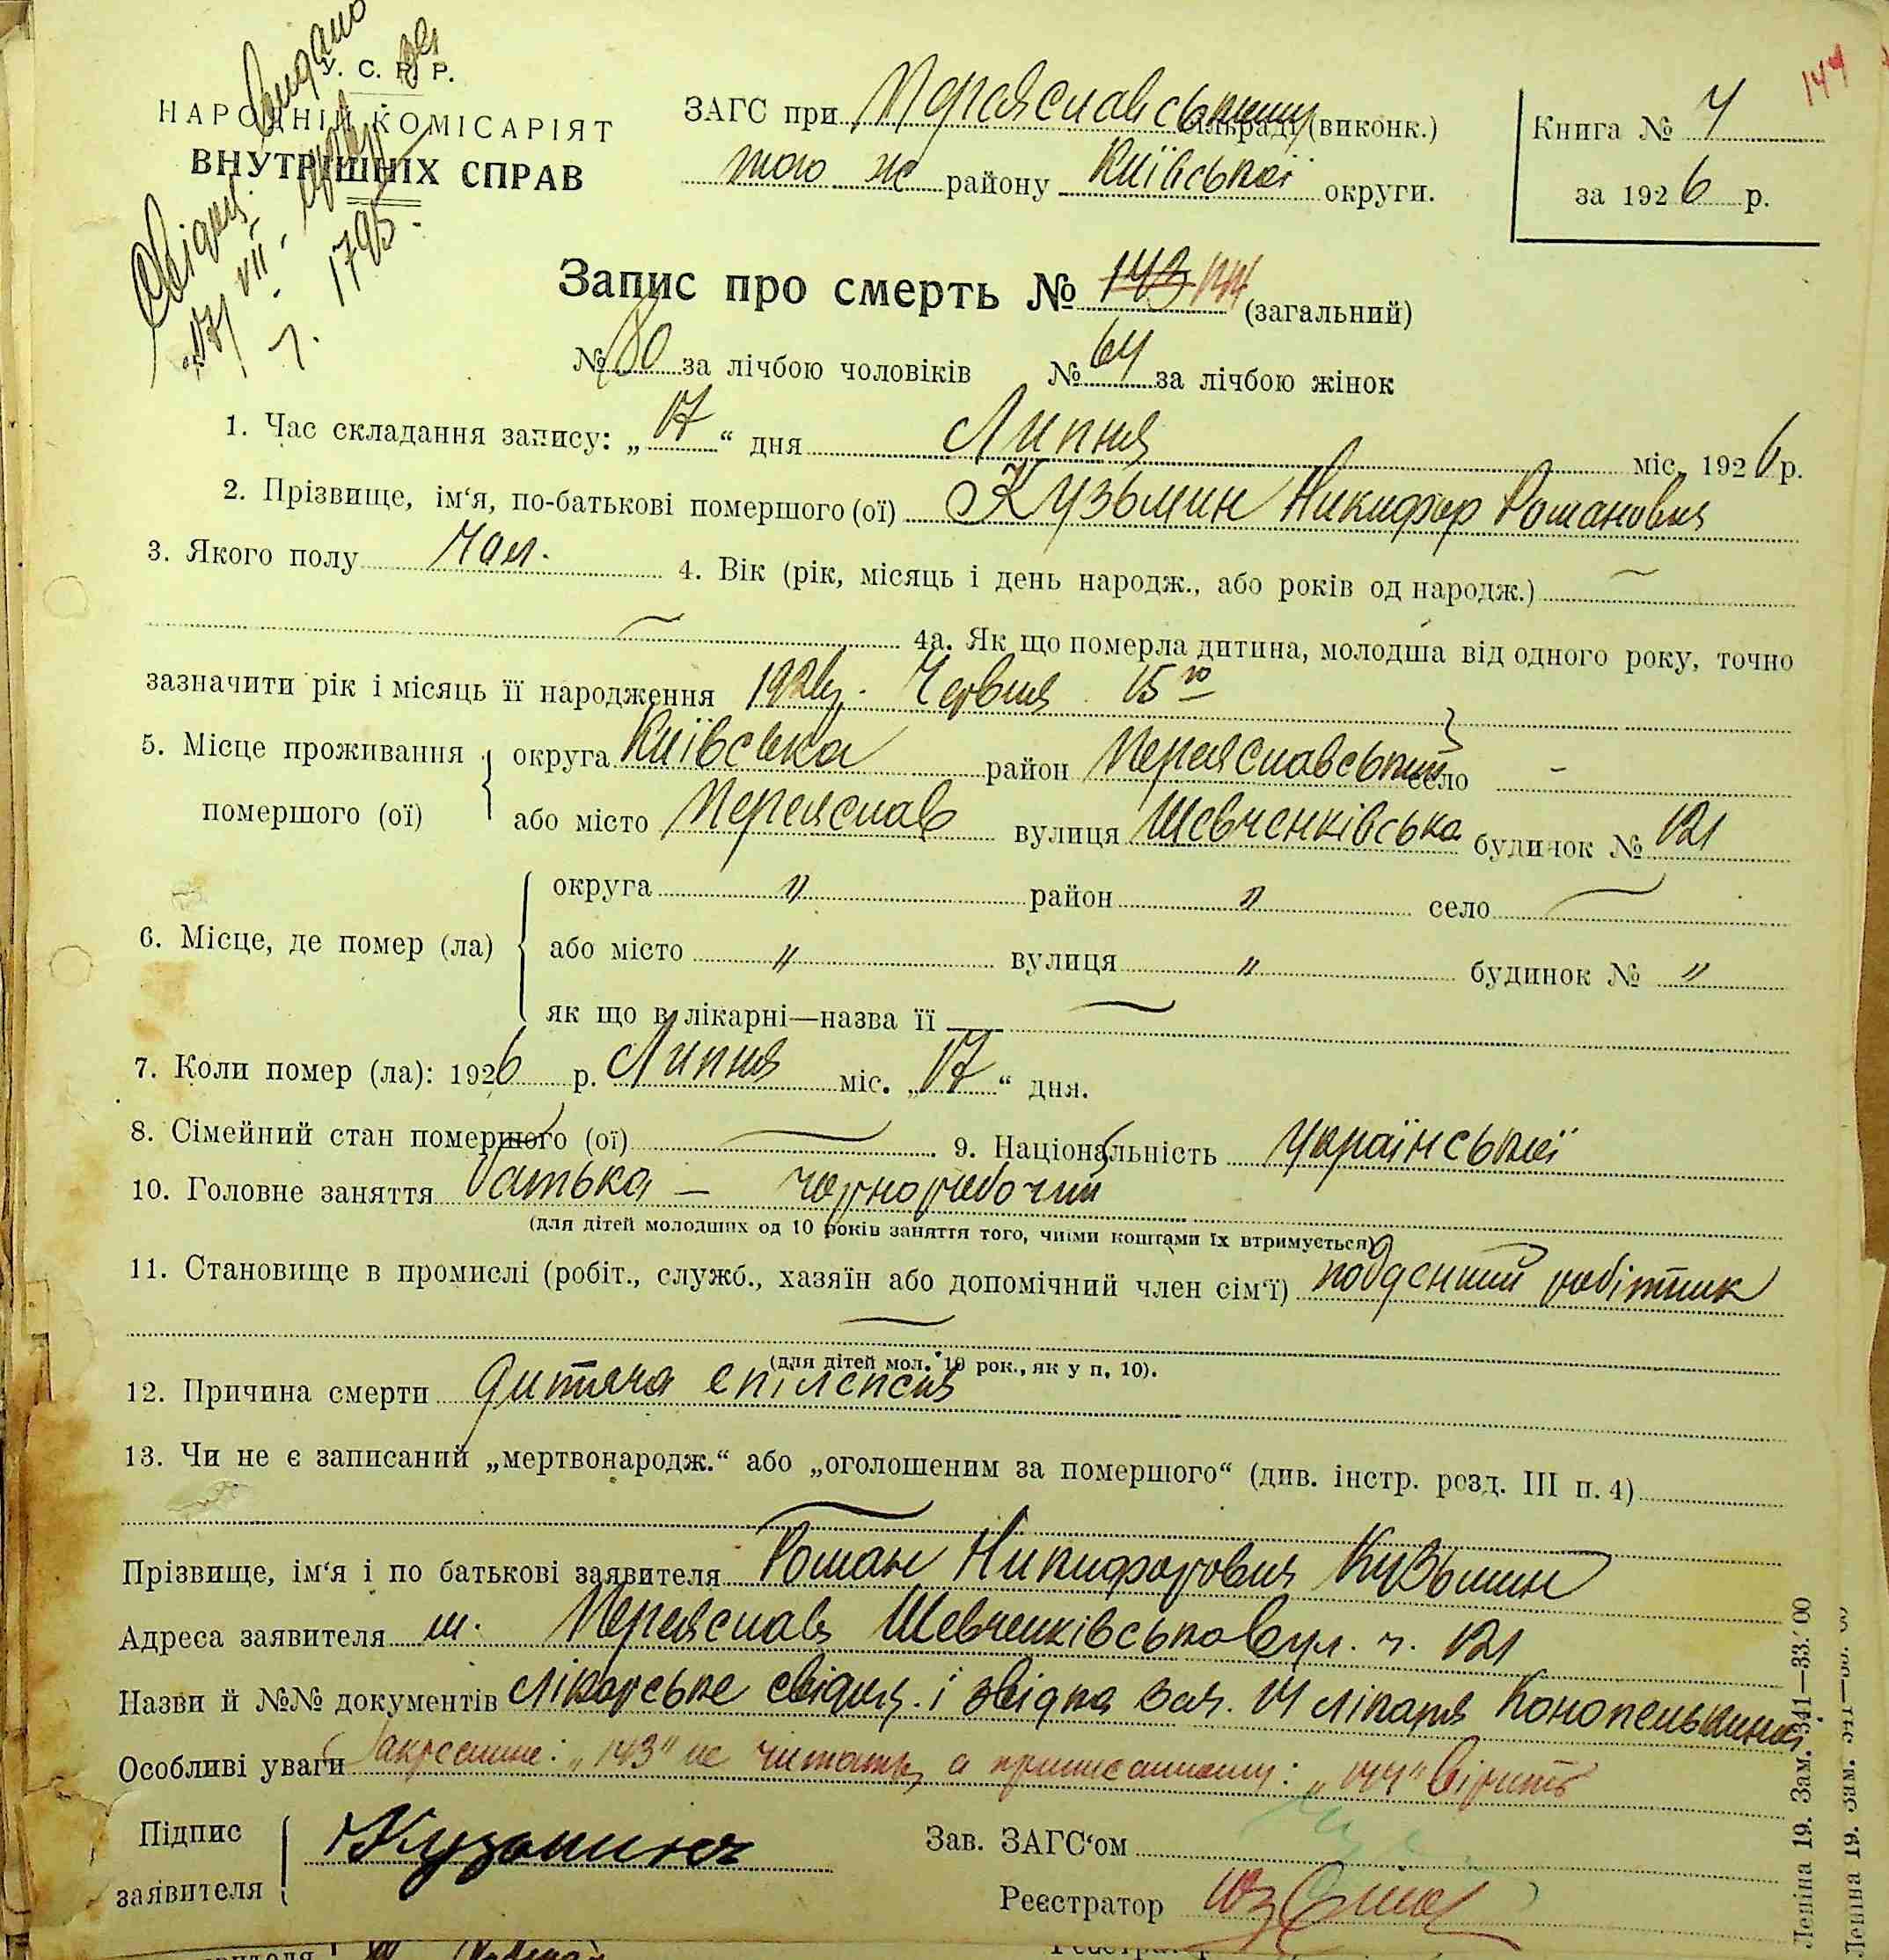 У. С. Р. Р.
НАРОДНІЙ КОМІСАРІЯТ
ВНУТРІШНІХ СПРАВ
Видано
Свідоц.
"17/ VII
ч. 1795.
ЗАГС при Переяславському сільраді (виконк.)
того ж району Київської округи.
Книга № 7
за 1926 р.
144
Запис про смерть № 143 144 (загальний)
№ 80 за лічбою чоловіків № 64 за лічбою жінок
1. Час складання запису: „17“ дня Липня міс. 1926 р.
2. Прізвище, ім‘я, по-батькові помершого (ої) Кузьмин Никифор Романович
3. Якого полу Чол. 4. Вік (рік, місяць і день народж., або років од народж.) —
— 4а. Як що померла дитина, молодша від одного року, точно
зазначити рік і місяць її народження 1926 р. Червня 15го
5. Місце проживання помершого (ої) округа Київська район Переяславський село -
або місто Переяслав вулиця Шевченківська будинок № 121
6. Місце, де помер (ла) округа " район " село —
або місто " вулиця " будинок № "
як що в лікарні—назва її —
7. Коли помер (ла): 1926 р. Липня міс. „17“ дня.
8. Сімейний стан помершого (ої) — 9. Національність Української
10. Головне заняття батька — чорноробочий
(для дітей молодших од 10 років заняття того, чиїми коштами їх втримується)
11. Становище в промислі (робіт., служб., хазяїн або допомічний член сім‘ї) поденний робітник
—
(для дітей мол. 10 рок., як у п. 10).
12. Причина смерти дитяча епілепсия
13. Чи не є записаний „мертвонародж.“ або „оголошеним за помершого“ (див. інстр. розд. III п. 4)
—
Прізвище, ім‘я і по батькові заявителя Роман Никифорович Кузьмин
Адреса заявителя м. Переяслав Шевченківська вул. ч. 121
Назви й №№ документів Лікарське свідоц. і звідка зач. 14 лікаря Конопелькина
Особливі уваги Закреслине: „143" не читать, а приписанному: „144" вірить
Підпис заявителя Кузьмин
Зав. ЗАГС‘ом
Реєстратор
Леніна 19. Зам. 341—33.‘00
Леніна 19. Зам. 341—33. 00